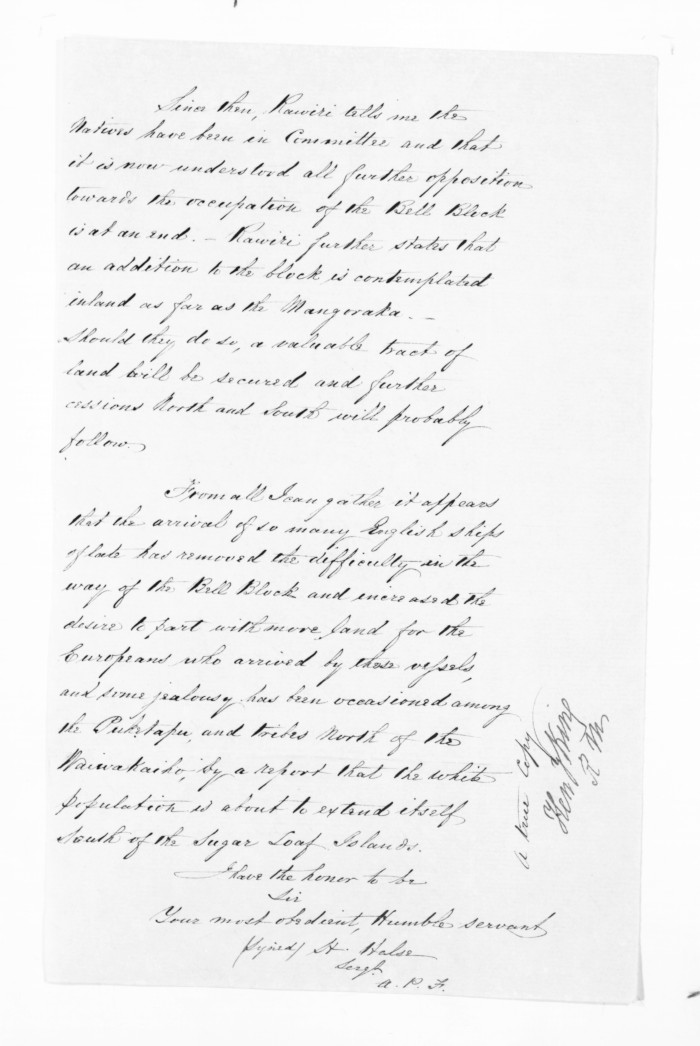 Since then, Rawiri tells me the
Natives have been in Committee and that
it is now understood all further opposition
towards the occupation of the Bell Block
is at an end. – Rawiri further states that
an addition to the block is contemplated
inland as far as the Mangoraka. –
Should they do so, a valuable tract of
land will be secured and further
cessions North and South will probably
follow.
From all I can gather it appears
that the arrival of so many English ships
of late has removed the difficulty in the
way of the Bell Block and increased the
desire to part with more land for the
Europeans who arrived by these vessels,
and some jealousy has been occasioned among
the Puketapu, and tribes North of the
Waiwakaiho, by a report that the white
population is about to extend itself
South of the Sugar Loaf Islands.
I have the honor to be
Sir
Your most obedient, Humble servant
(signed) H. Halse
Sergt.
A. P. F.
A true Copy
Henry King
R M